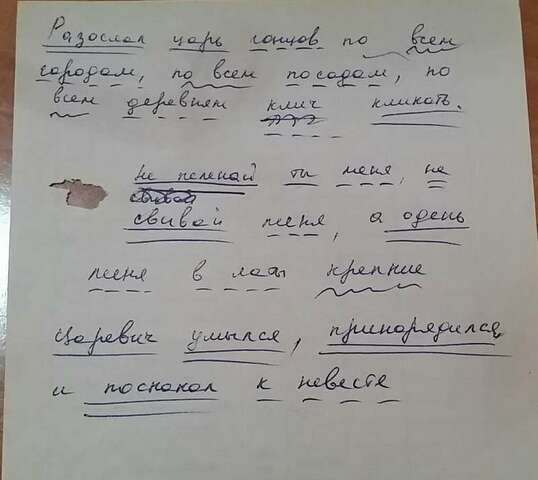 Разослал царь гонцов по всем
городам, по всем посадам, по
всем деревням клич кликать.
не пеленай ты меня, не
свивай
свивай меня, а одень
меня в латы крепкие
Царевич умылся, принарядился
и поскакал к невесте